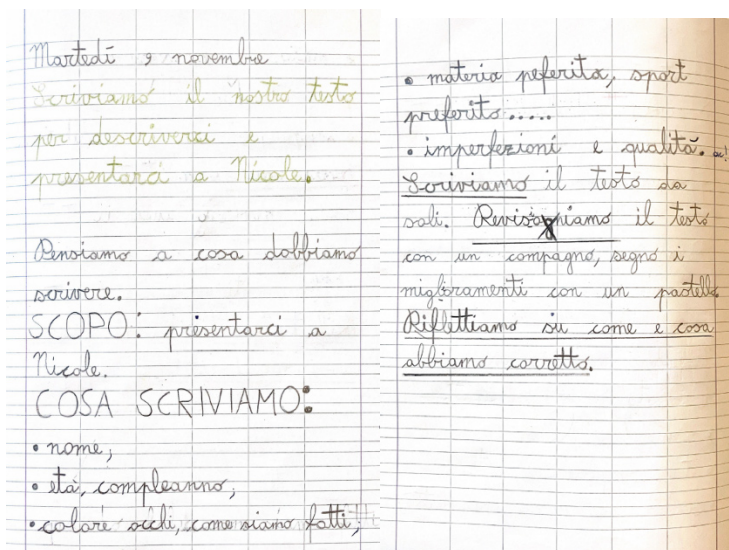 Martedì 9 novembre
Scriviamo il nostro testo
per descriverci e
presentarci a Nicole.
Pensiamo a cosa dobbiamo
scrivere.
SCOPO: presentarci a
Nicole.
COSA SCRIVIAMO:
• nome;
• età, compleanno;
• colore occhi, come siamo fatti;
• materia peferita, sport
preferito.....
• imperfezioni e qualità.
Scriviamo il testo da
soli. Revisioniamo il testo
con un compagno, segno i
miglioramenti con un pastello
Riflettiamo su come e cosa
abbiamo corretto.